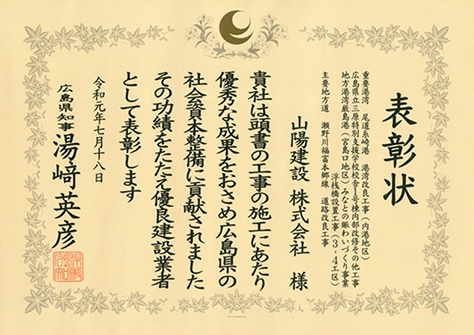 表彰状
重要港湾 尾道糸崎港 港湾改良工事(内港地区)
広島県立三原特別支援学校校舎1号棟内部改修その他工事
地方港湾厳島港(宮島口地区)みなとの賑わいづくり事業
浮桟橋設置工事(3・4工区)
主要地方道 瀬野川福富本郷線 道路改良工事
山陽建設 株式会社 様
貴社は頭書の工事の施工にあたり
優秀な成果をおさめ広島県の
社会資本整備に貢献されました
その功績をたたえ優良建設業者
として表彰します
令和元年七月十八日
広島県知事 湯﨑英彦